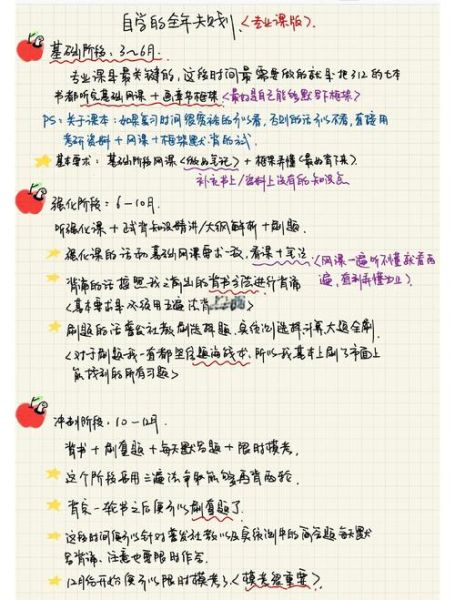 自学的全年规划 <专业课版>.
基础阶段: 3~6月.
专业课是最关键的, 这段时间最需要做的就是把312的七本
书都听完基础网课 + 画章节框架 <最好是自己能够默下框架>
PS: 关于课本: 如果复习时间很宽裕的可以看, 否则的话可以不看, 直接用
考研资料 + 网课 + 框架默背的方式.
基本要求: 基础阶段网课 <做好笔记> + 框架弄懂 <最好背下来>
补充书上/资料上没有的知识点
强化阶段: 6-10月.
听强化课 + 背知识精讲/大纲解析 + 刷题.
强化课的话和基础网课要求一致, 看课 + 笔记 <网课一遍听不懂就看两
遍, 直到弄懂为止>
背诵的话按照我之前出的背书方法进行背诵
<基本要求是必须用五遍法背
刷题的话
刷选择题,
选择计算大题全刷.
<对于刷题我一直都坚信题海战术, 所以我基本上刷了市面上
能找到的所有习题>
冲刺阶段: 10-12月.
背书 + 刷真题 + 每天默写题 + 限时模考.
这个阶段要用三遍法争取能够再背两轮.
背完一轮书之后便可以刷真题了.
这段时间便可以针对
的简答题每天默
写背诵, 注意也要限时作答.
12月份开始便可以限时模考了 <模考很重要>.